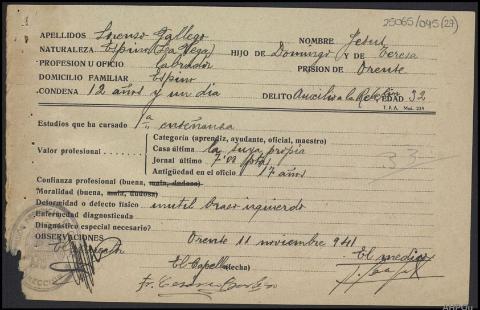 25065/045(27)
APELLIDOS Lorenzo Gallego NOMBRE Jesus
NATURALEZA Espino (La Vega) HIJO DE Domingo Y DE Teresa
PROFESION U OFICIO Labrador PRISION DE Orente
DOMICILIO FAMILIAR Espino
CONDENA 12 años y un dia DELITO Auxilio a la Rebelión EDAD 32
Estudios que ha cursado 1ª enseñansa
Categoría (aprendiz, ayudante, oficial, maestro)
Valor profesional Casa última la suya propia
Jornal último 7'00 ptas
Antigüedad en el oficio 17 años
33
Confianza profesional (buena, mala, dudosa)
Moralidad (buena, mala, dudosa)
Deformidad o defecto físico inutil braso izquierdo
Enfermedad diagnosticada
Diagnóstico especial necesario?
OBSERVACIONES Orente 11 noviembre 941
El Capellan (fecha) El medico